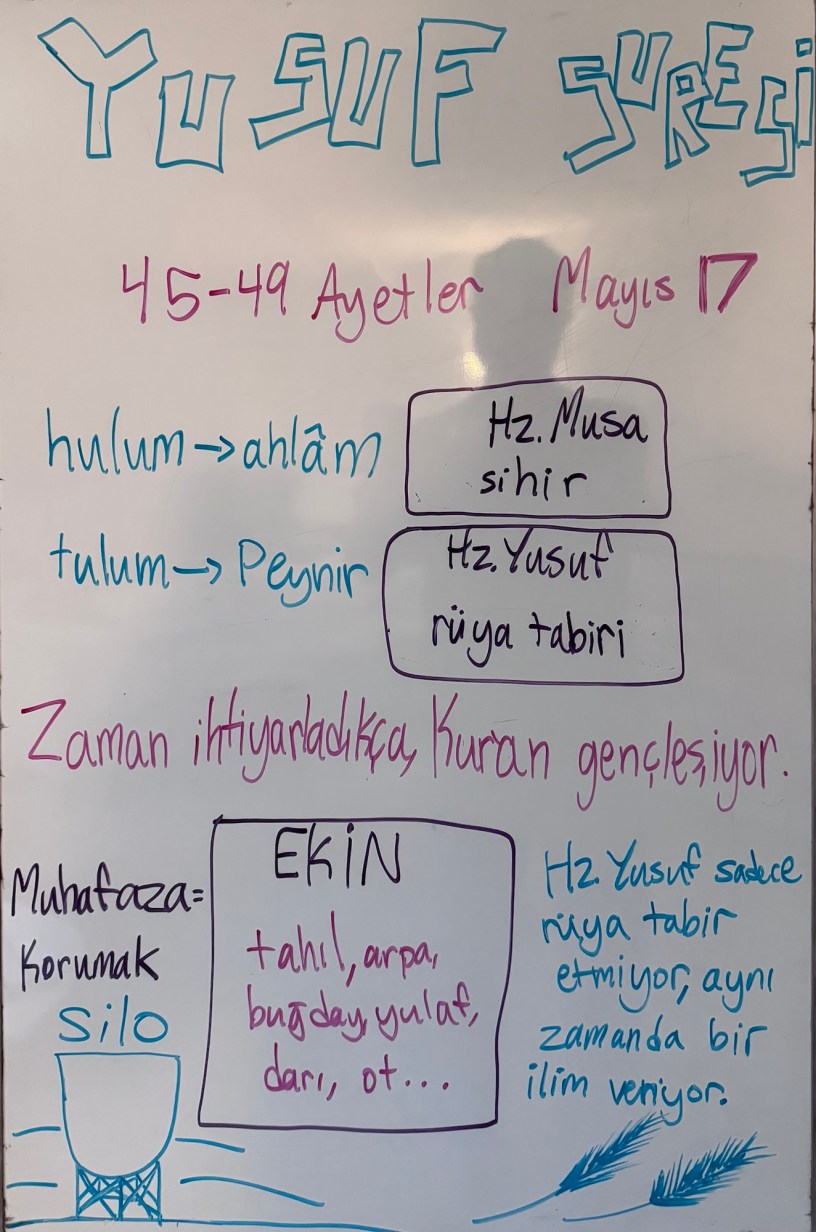 YUSUF SURESİ
45-49 Ayetler Mayıs 17
hulum → ahlâm
Hz. Musa
sihir
tulum → Peynir
Hz. Yusuf
rüya tabiri
Zaman ihtiyarladıkça, Kur'an gençleşiyor.
Muhafaza=
Korumak
EKİN
tahıl, arpa,
buğday, yulaf,
darı, ot...
Hz. Yusuf sadece
rüya tabir
etmiyor, aynı
zamanda bir
ilim veriyor.
Silo